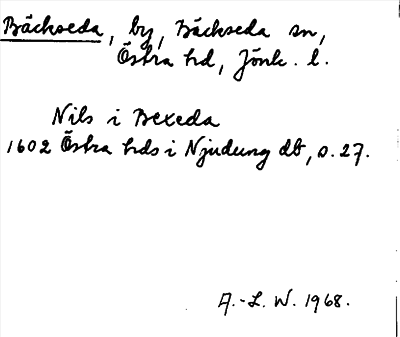 Bäckseda, by, Bäckseda sn,
Östra hd, Jönk. l.
Nils i Bexeda
1602 Östra hds i Njudung db, s. 27.
A.-L. W. 1968.